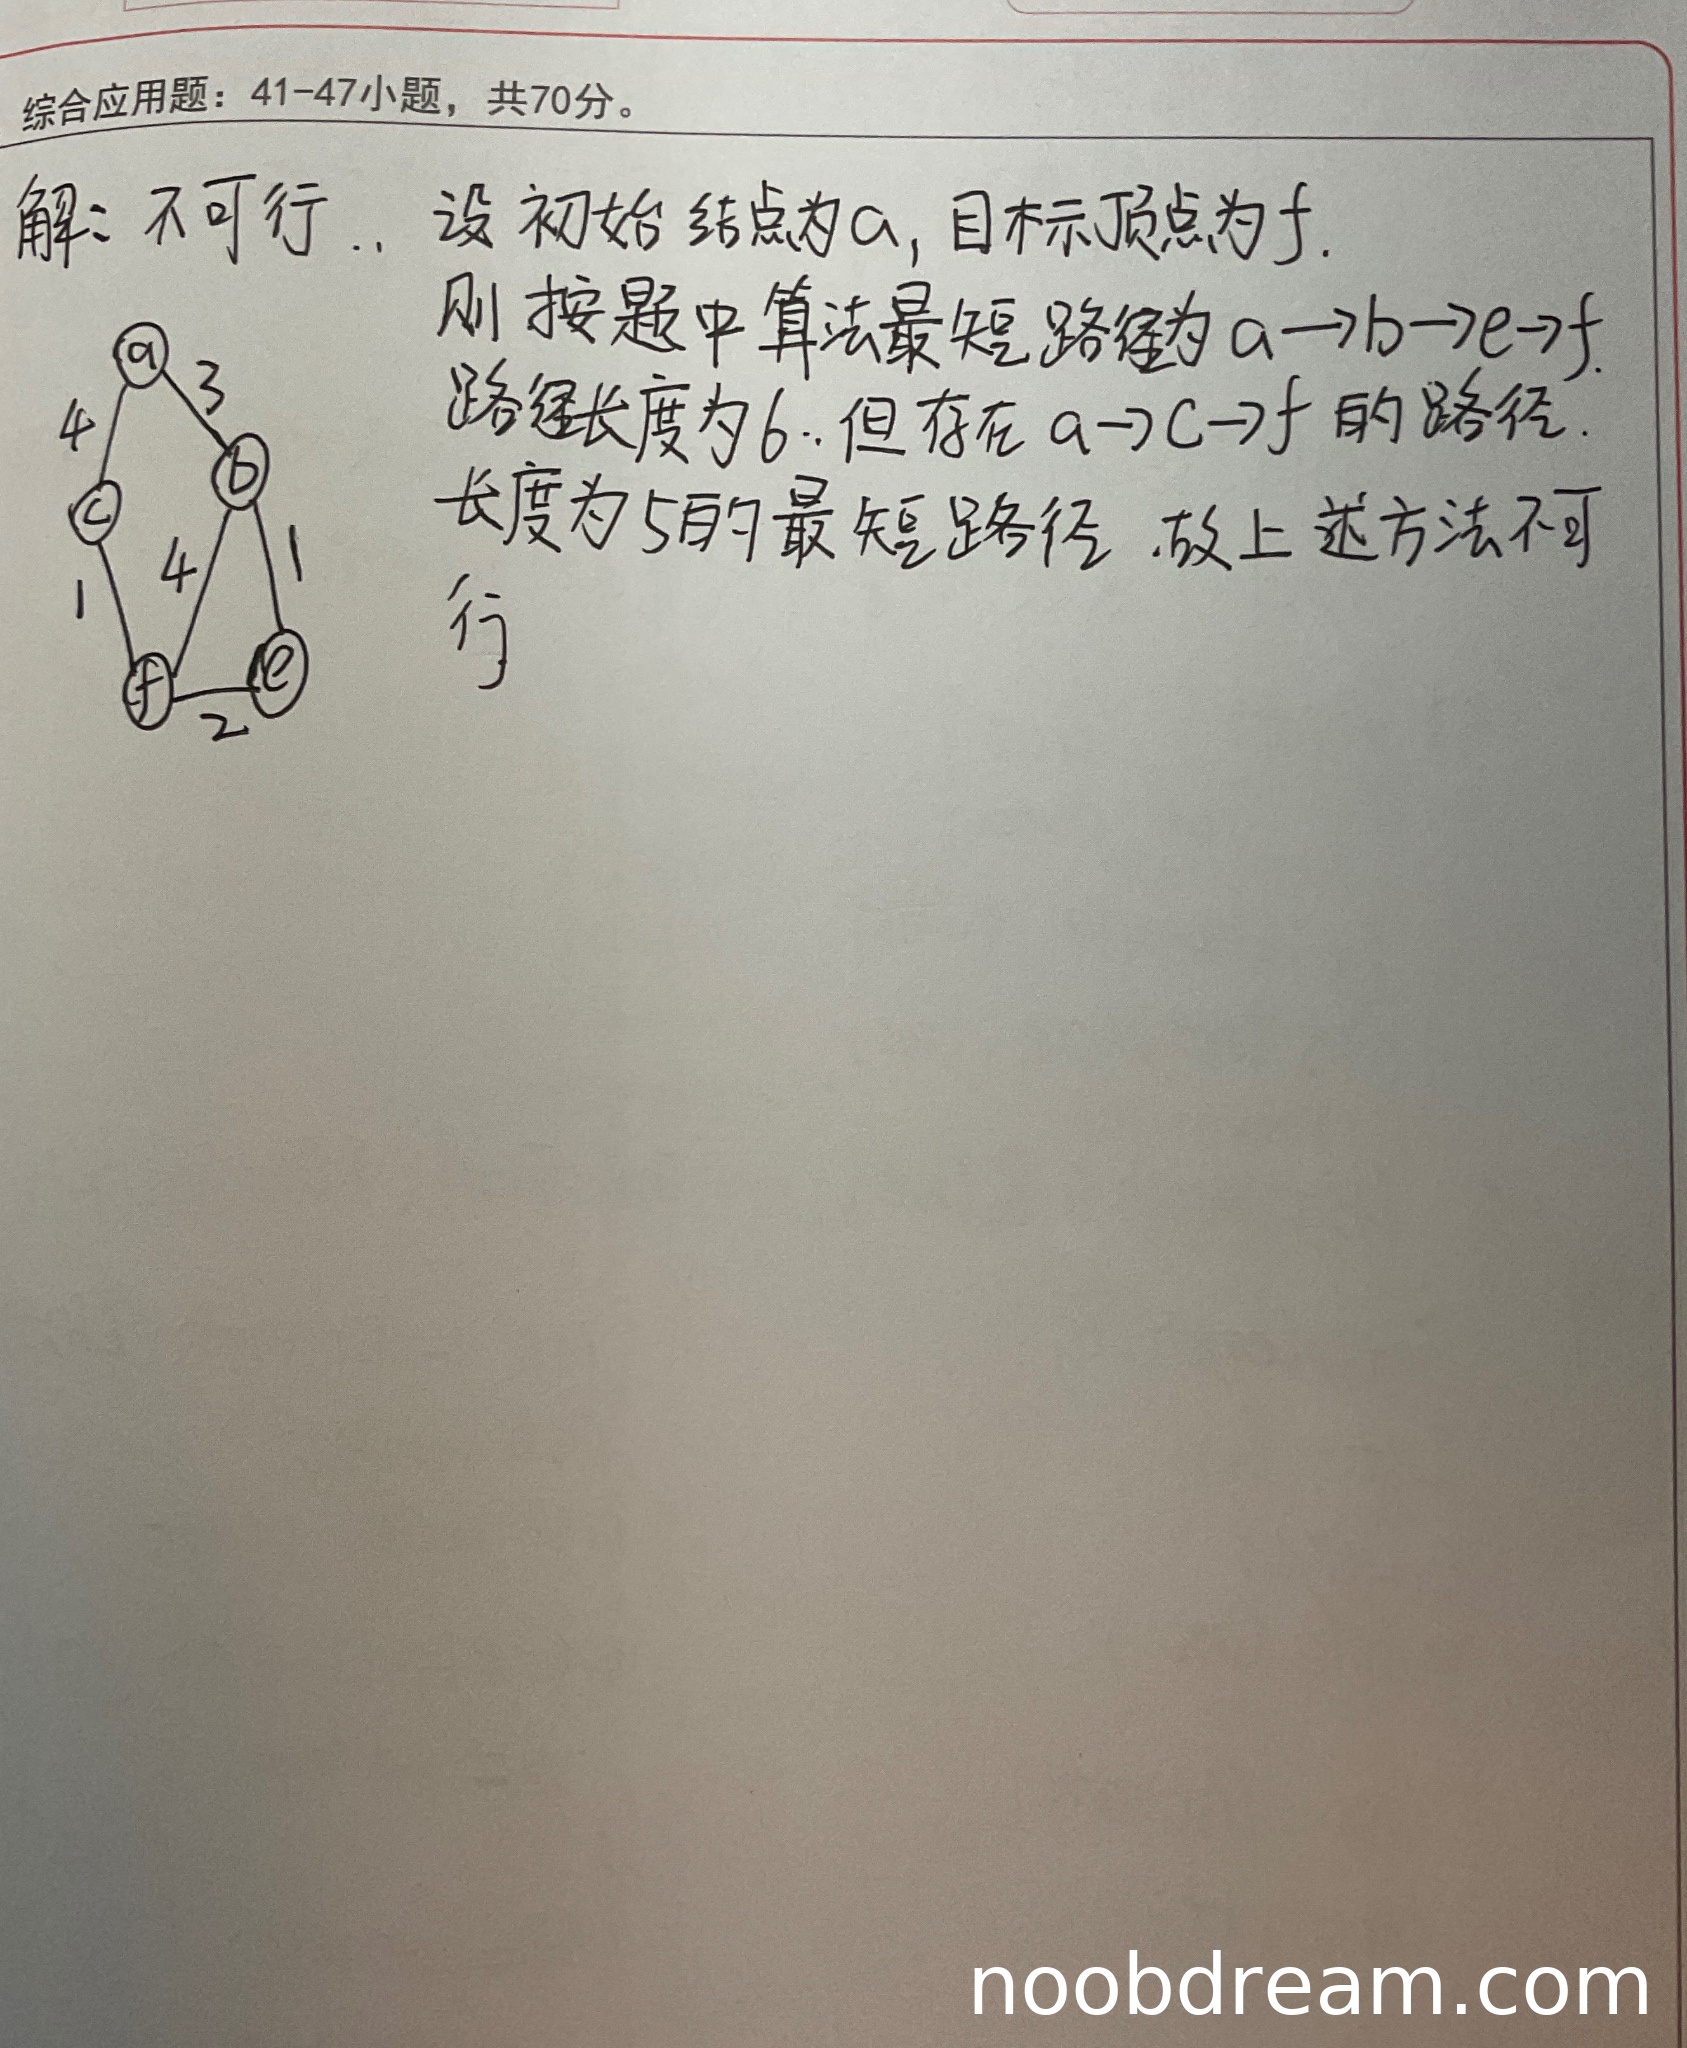 综合应用题：41-47小题，共70分。
解：不可行.. 设初始结点为a，目标顶点为f.
则按题中算法最短路径为a→b→e→f.
路径长度为6..但存在a→c→f的路径.
长度为5的最短路径.故上述方法不可
行
a
4 3
c b
1 4 1
f e
2
noobdream.com